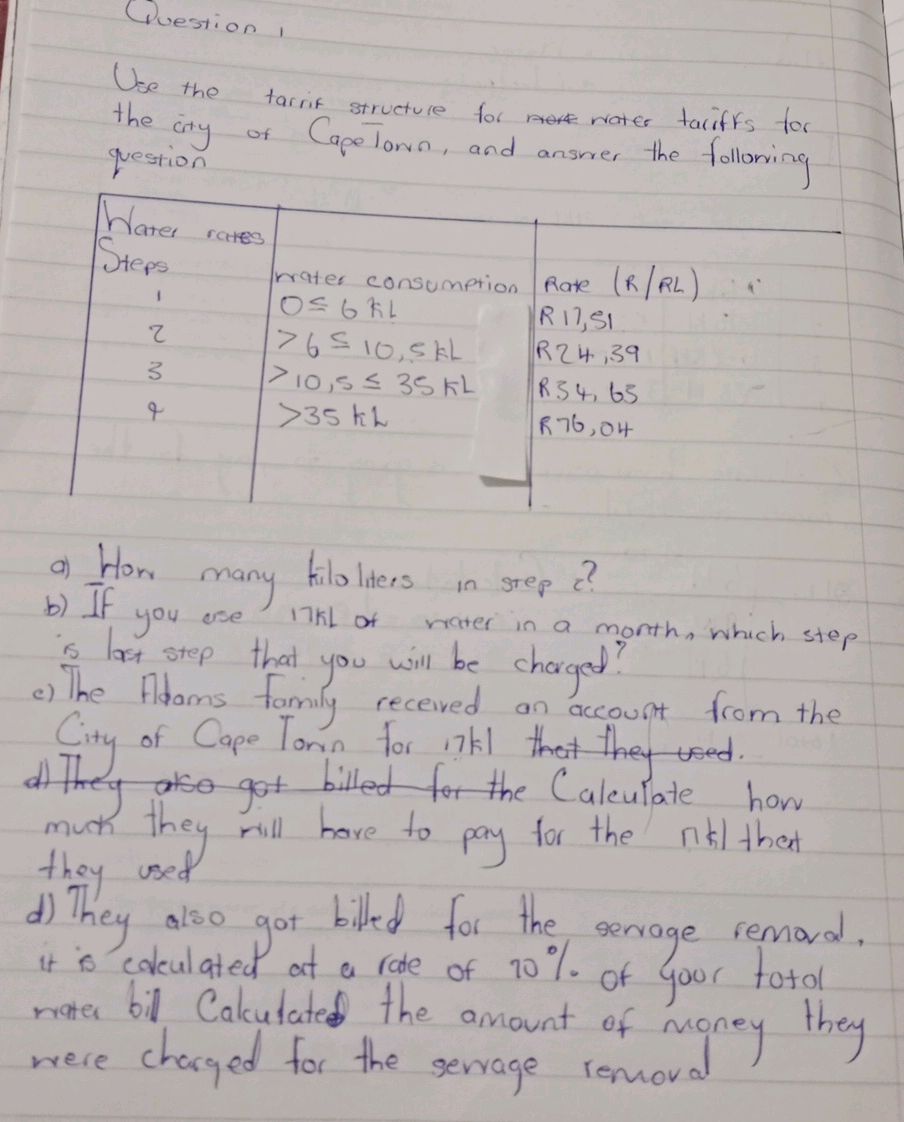 Question 1
Use the tarrif structure for more water tariffs for
the city of Cape Town, and answer the following
question
Water rates
Steps water consumption Rate (R/RL)
1 0 ≤ 6 kL R17,51
2 >6 ≤ 10,5 kL R24,39
3 >10,5 ≤ 35 kL R34,65
4 >35 kL R76,04
a) How many kiloliters in step 2?
b) If you use 17kL of water in a month, which step
is last step that you will be charged?
c) The Adams family received an account from the
City of Cape Town for 17kl that they used.
d) They also got billed for the Calculate how
much they will have to pay for the 17kl that
they used
d) They also got billed for the sewage removal,
it is calculated at a rate of 70% of your total
water bil Calculated the amount of money they
were charged for the sewage removal